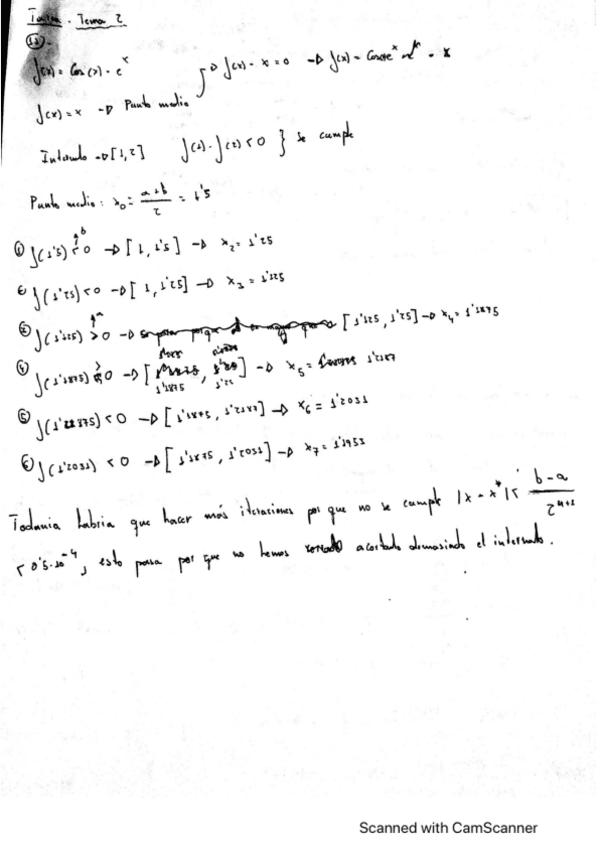 Tarea. Tema 2
J(x) = Cos(x) · e^x J(x) - x = 0 → J(x) = Cosx e^x - x
J(x) = x → Punto medio
Intervalo → [1,2] J(1) · J(2) < 0 } se cumple
Punto medio: x₀ = a+b/2 = 1'5
① J(1'5) < 0 → [1, 1'5] → x₂ = 1'25
J(1'25) < 0 → [1, 1'25] → x₃ = 1'125
③ J(1'125) > 0 → [1'125, 1'25] → x₄ = 1'1875
④ J(1'1875) 0 → [1'1875, 1'25] → x₅ = 1'2187
⑤ J(1'21875) < 0 → [1'1875, 1'2187] → x₆ = 1'2031
⑥ J(1'2031) < 0 → [1'1875, 1'2031] → x₇ = 1'1953
Todavia habria que hacer más iteraciones por que no se cumple |x - x*| < b-a/2^(n+1)
< 0'5·10⁻⁴, esto pasa por que no hemos acortado demasiado el intervalo.
Scanned with CamScanner